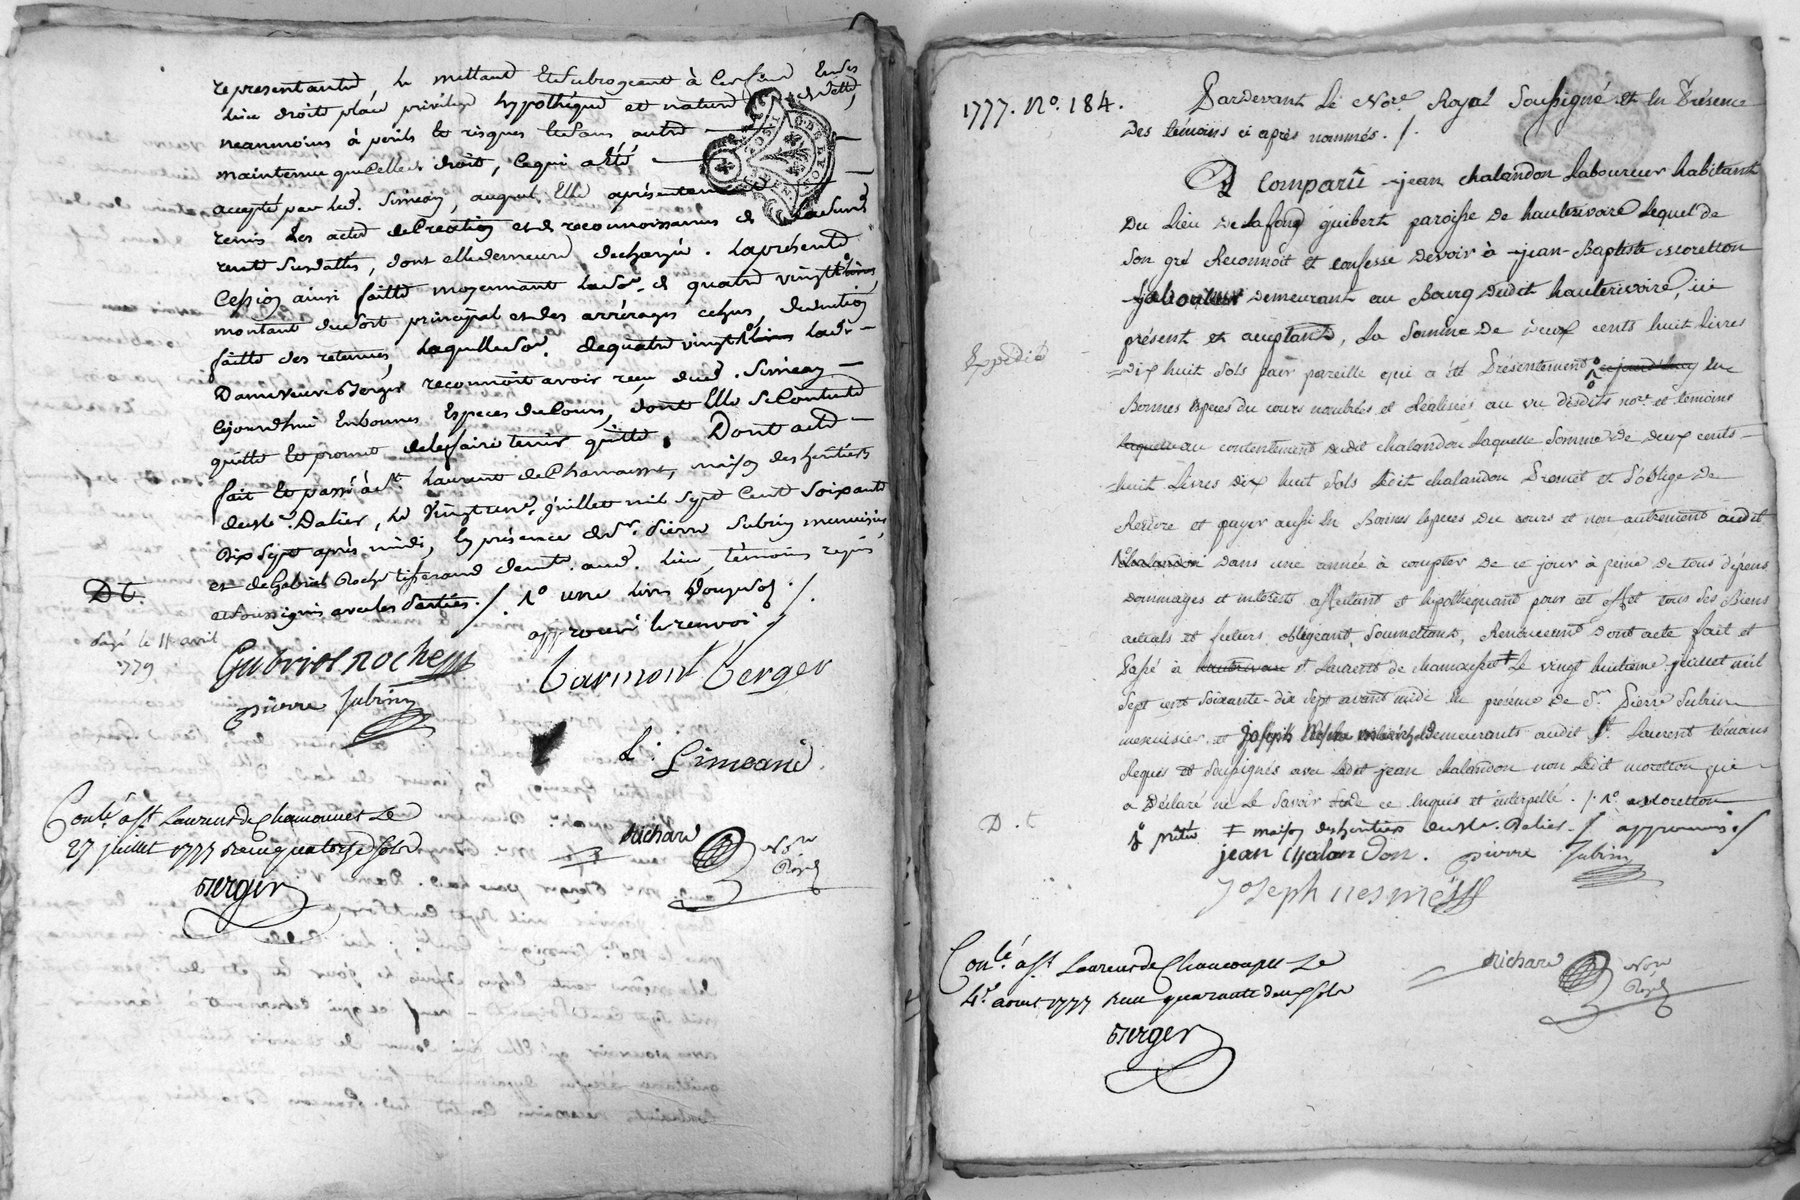 representante, le mettant et subrogeant à cet effet en ses
lieu droit place privilege hypothéque et nature de dette,
neanmoins à perils et risques et sans autre
maintenue que celle de droit, Ce qui a été
accepté par led. Simean, auquel Elle a présentement
remis les actes de Creation et de reconnoissances de lad.
rente susdattés, dont elle demeure dechargée. La présente
Cession ainsi faitte moyennant la so.e de quatre vingt livres
montant du sort principal et des arrérages echus, deduction
faitte des retenues, Laquelle so.e de quatre vingt livres lad.
Dame Veuve Berger reconnoit avoir reçu dud. Simean
cejourdhui En bonnes Especes du Cours, dont Elle Se Contente
quitte et promet de le faire tenir quitte. Dont acte
fait et passé à St Laurent de Chamousset, maison des héritiers
de Me. Dalier, le vingt un juillet mil sept Cent soixante
dix sept après midi, En présence de Sr. Pierre Subrin menuisier
et de Gabriel Roche tisserand demt. aud. Lieu, témoins requis
et soussignés avec les parties. /. 1º une livre Douze sols /.
D t.
approuvé le renvoi /
payé le 11 avril
1779
Gabriel Roche
Carmont Berger
pierre Subrin
L. Simeane.
Conlé à St Laurent de Chamousset Le
27 juillet 1777 Reçu quatorze sols
Berger
Richard Nore Royal
1777. Nº. 184.
Pardevant Le Nore. Royal Soussigné et En Présence
Des témoins ci après nommés. /.
A Comparu jean chalandon Laboureur habitant
Du Lieu De Lafong guibert paroisse De hauterivoire Lequel de
Son gré Reconnoit et confesse Devoir à jean-Baptiste Moretton
laboureur Demeurant au Bourg Dudit hauterivoire, ici
présent et acceptant, La Somme De Deux cents huit Livres
Expedié
Dix huit Sols pour pareille qui a été Présentement 1º cejourd'huy En
Bonnes Especes du cours nombrées et Réalisées au vu desdits nore. et temoins
laquelle au contentement dudit chalandon Laquelle Somme De Deux cents
huit Livres Dix huit Sols Ledit chalandon Promet et S'oblige De
Rendre et payer aussi En Bonnes Especes Du cours et non autrement audit
1º chalandon Dans une année à compter De ce jour à peine De tous dépens
Dommages et intérêts affectant et hypothequant pour cet effet tous Ses Biens
actuels et futurs obligeant, Soumettant, Renonceant Dont acte fait et
Passé à hauterivoire St Laurent de chamousset ‡ Le vingt huitieme juillet mil
Sept cent Soixante-dix Sept avant midi En présence de Sr Pierre Subrin
menuisier et joseph Nesme Demeurants audit St. Laurent témoins
Requis et Soussignés avec Ledit jean chalandon non Ledit moretton qui
a Déclaré ne Le Savoir De ce Enquis et interpellé. /. 1º Moretton
D. t
1º prêté ‡ maison des héritiers de Me. Dalier / approuvés /
jean Chalandon. pierre Subrin
Joseph nesme
Conlé. à St Laurent de Chamousset Le
4e aoust 1777 Reçu quarante deux sols
Berger
Richard Nore Royal